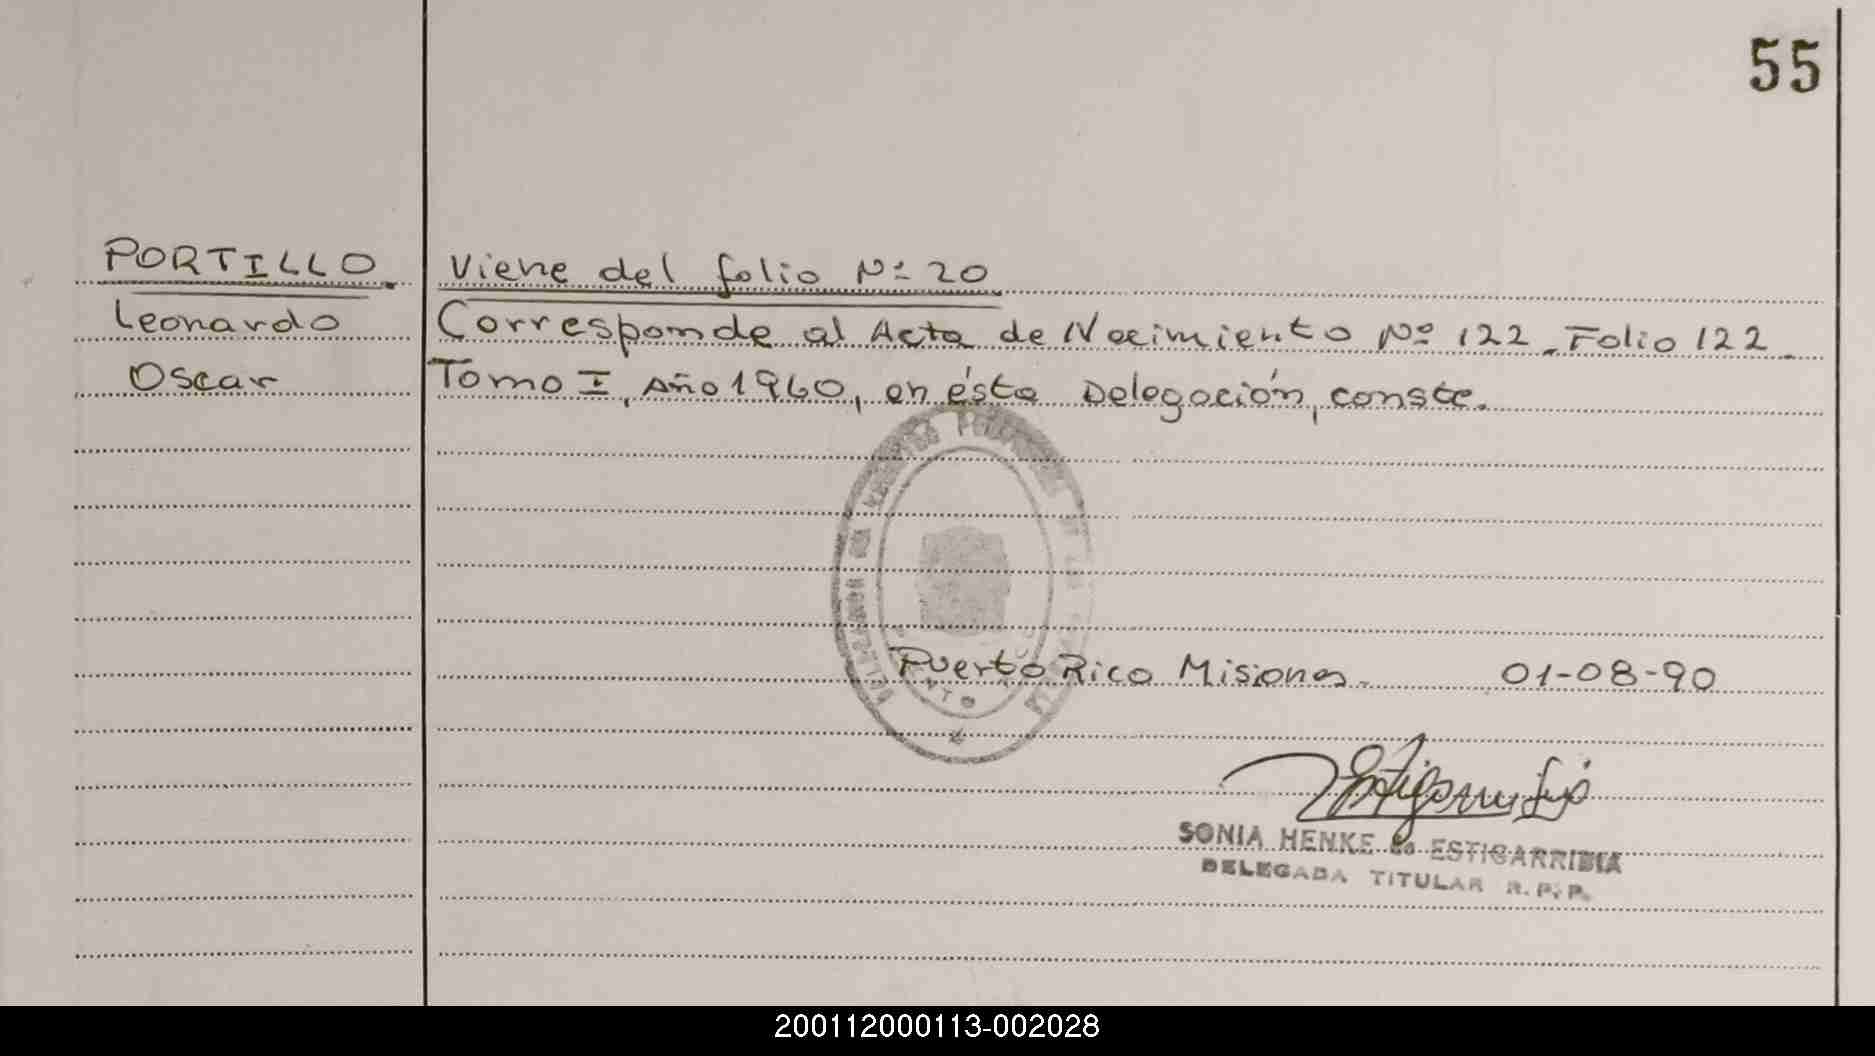 55
PORTILLO
Leonardo
Oscar
Viene del folio Nº 20
Corresponde al Acta de Nacimiento Nº 122. Folio 122
Tomo I, Año 1960, en ésta Delegación, conste.
Puerto Rico Misiones. 01-08-90
SONIA HENKE de ESTIGARRIBIA
DELEGADA TITULAR R. P. P.
200112000113-002028